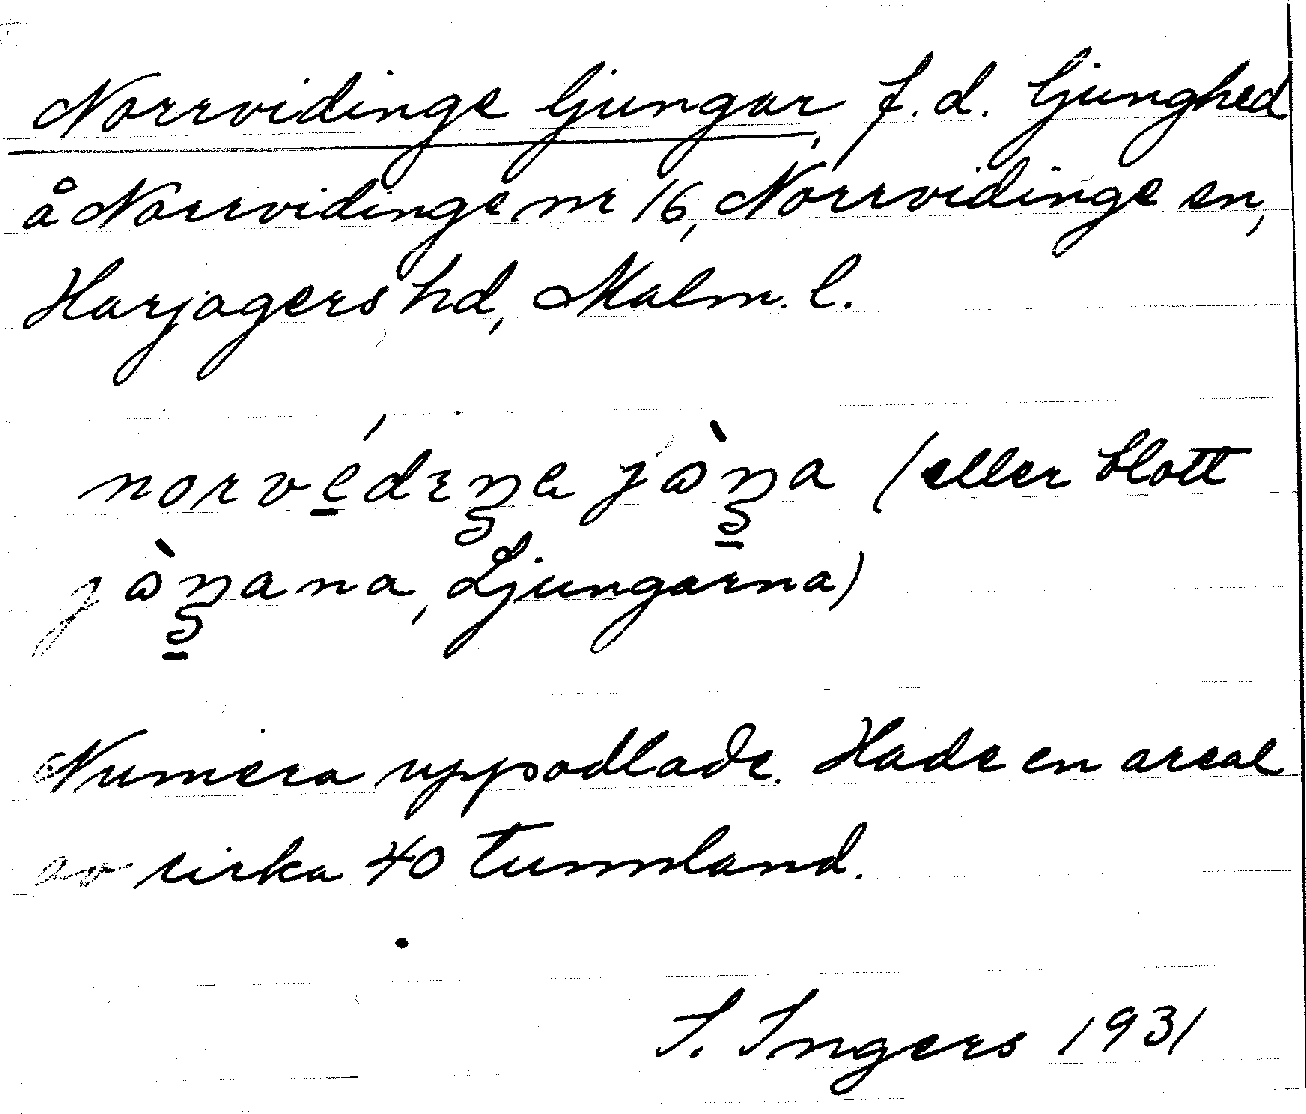 Norrvidinge ljungar, f.d. ljunghed
å Norrvidinge nr 16, Norrvidinge sn,
Harjagers hd, Malm. l.
(eller blott
Ljungarna)
Numera uppodlade. Hade en areal
av cirka 40 tunnland.
I. Ingers 1931